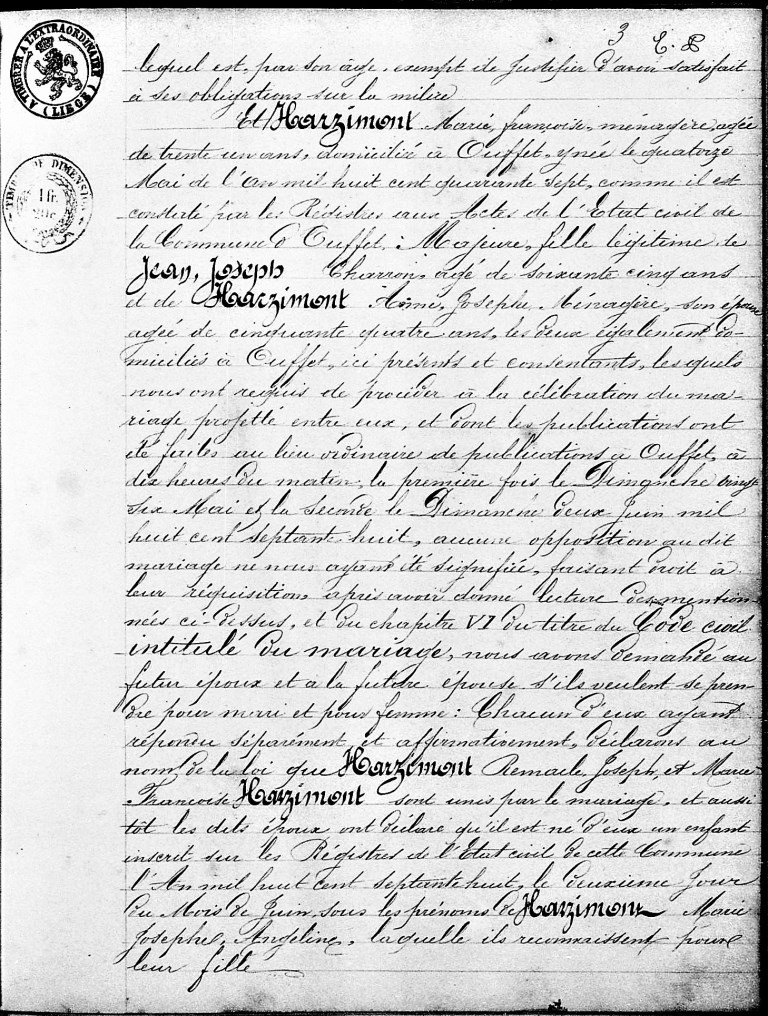 3 E. P
A TIMBRER A L'EXTRAORDINAIRE
(LIEGE)
TIMBRE DE DIMENSION
1 fr.
20c
lequel est, par son âge, exempt de justifier d'avoir satisfait
à ses obligations sur la milice
Et Harzimont Marie, françoise, ménagère, agée
de trente un ans, domiciliée à Ouffet, y née le quatorze
Mai de l'an mil huit cent quarante sept, comme il est
constaté par les Régistres aux Actes de l'Etat civil de
la Commune d'Ouffet, Majeure, fille légitime de
Jean, Joseph Charron, agé de soixante cinq ans
et de Harzimont Anne, Josephe, Ménagère, son épouse
agée de cinquante quatre ans, les deux également do-
miciliés à Ouffet, ici présents et consentants, lesquels
nous ont requis de procéder à la célébration du ma-
riage projetté entre eux, et dont les publications ont
été faites au lieu ordinaire de publications à Ouffet, à
dix heures du matin, la première fois le Dimanche vingt
six Mai et la seconde le Dimanche deux Juin mil
huit cent septante huit, aucune opposition au dit
mariage ne nous ayant été signifiée, faisant droit à
leur réquisition, après avoir donné lecture des mention-
nées ci-dessus, et du chapitre VI du titre du Code civil
intitulé du mariage, nous avons demandé au
futur époux et à la future épouse s'ils veulent se pren-
dre pour mari et pour femme : Chacun d'eux ayant
répondu séparément et affirmativement, déclarons au
nom de la loi que Harzimont Remacle, Joseph, et Marie
Françoise Harzimont sont unis par le mariage, et aussi
tôt les dits époux ont déclaré qu'il est né d'eux un enfant
inscrit sur les Régistres de l'Etat civil de cette Commune
l'An mil huit cent septante huit, le deuxième Jour
du Mois de Juin, sous les prénoms de Harzimont Marie
Josephe, Angeline, laquelle ils reconnaissent pour
leur fille